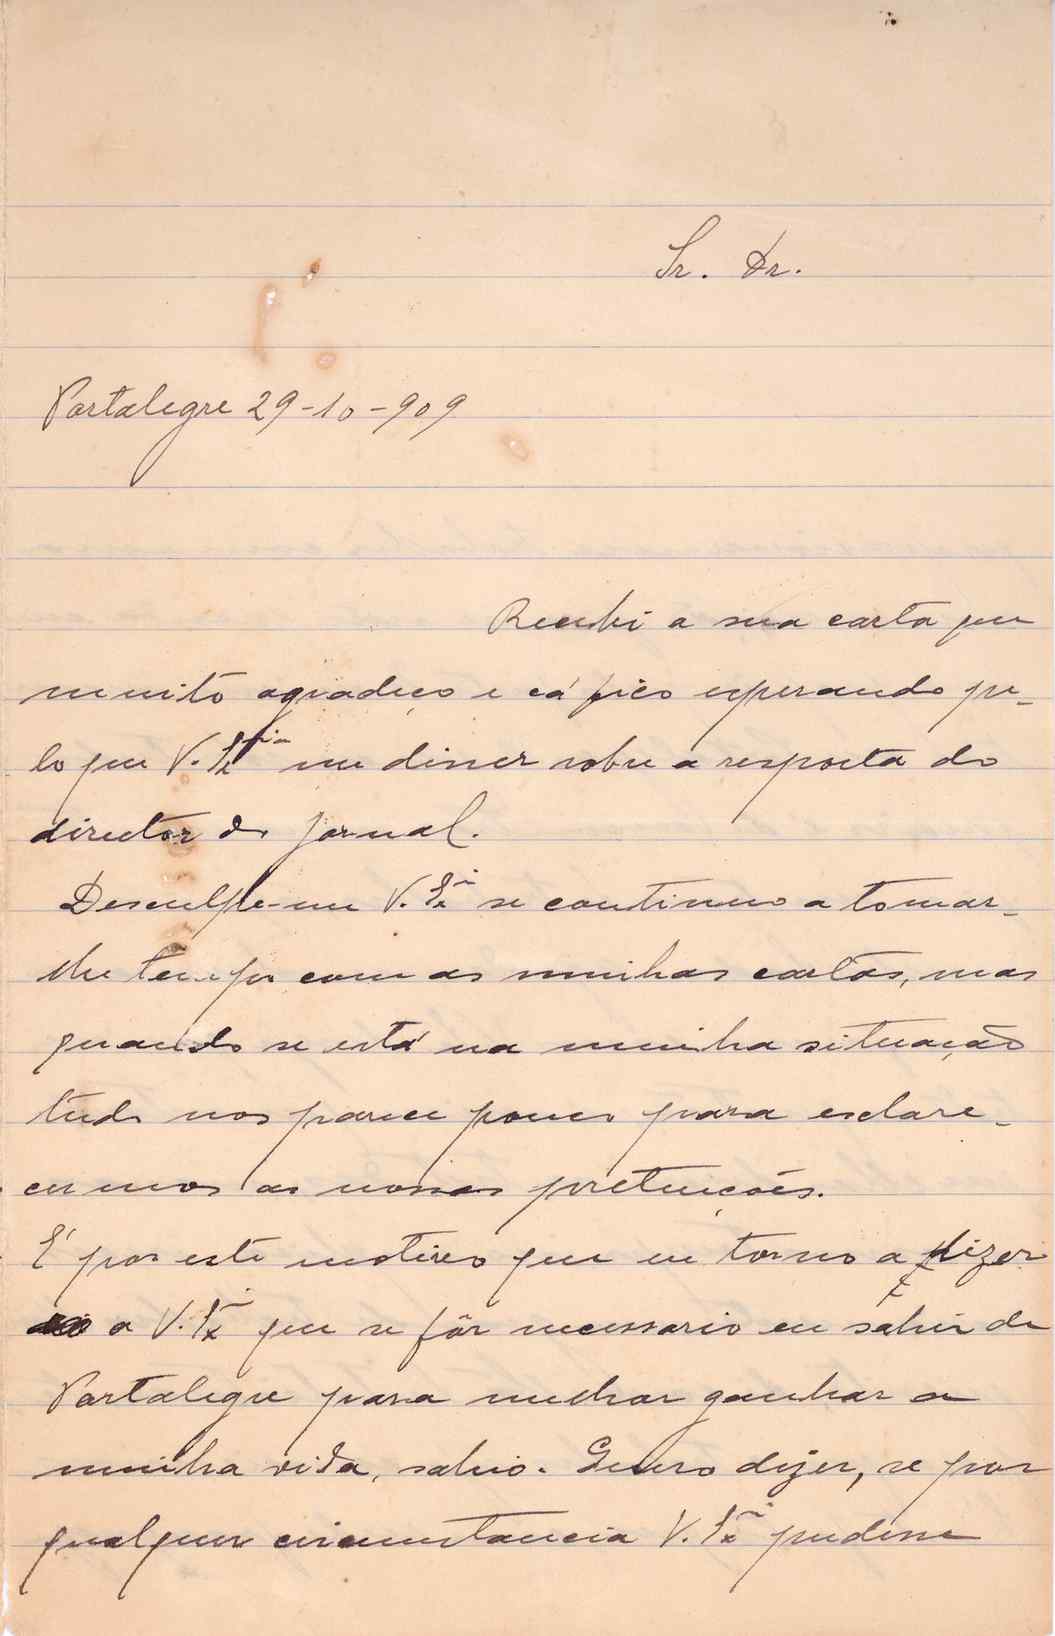 Sr. Dr.
Portalegre 29-10-909
Recebi a sua carta que
muito agradeço e cá fico esperando pe-
lo que V. Ex.cia me disser sobre a resposta do
director do jornal.
Desculpe-me V. Ex.a se continuo a tomar-
lhe tempo com as minhas cartas, mas
quando se está na minha situação
tudo nos parece pouco para esclare-
cermos as nossas pretenções.
É por este motivo que eu torno a dizer
a V. Ex.a que se fôr necessario eu sahir de
Portalegre para melhor ganhar a
minha vida, sahio. Quero dizer, se por
qualquer circumstancia V. Ex.a pudesse